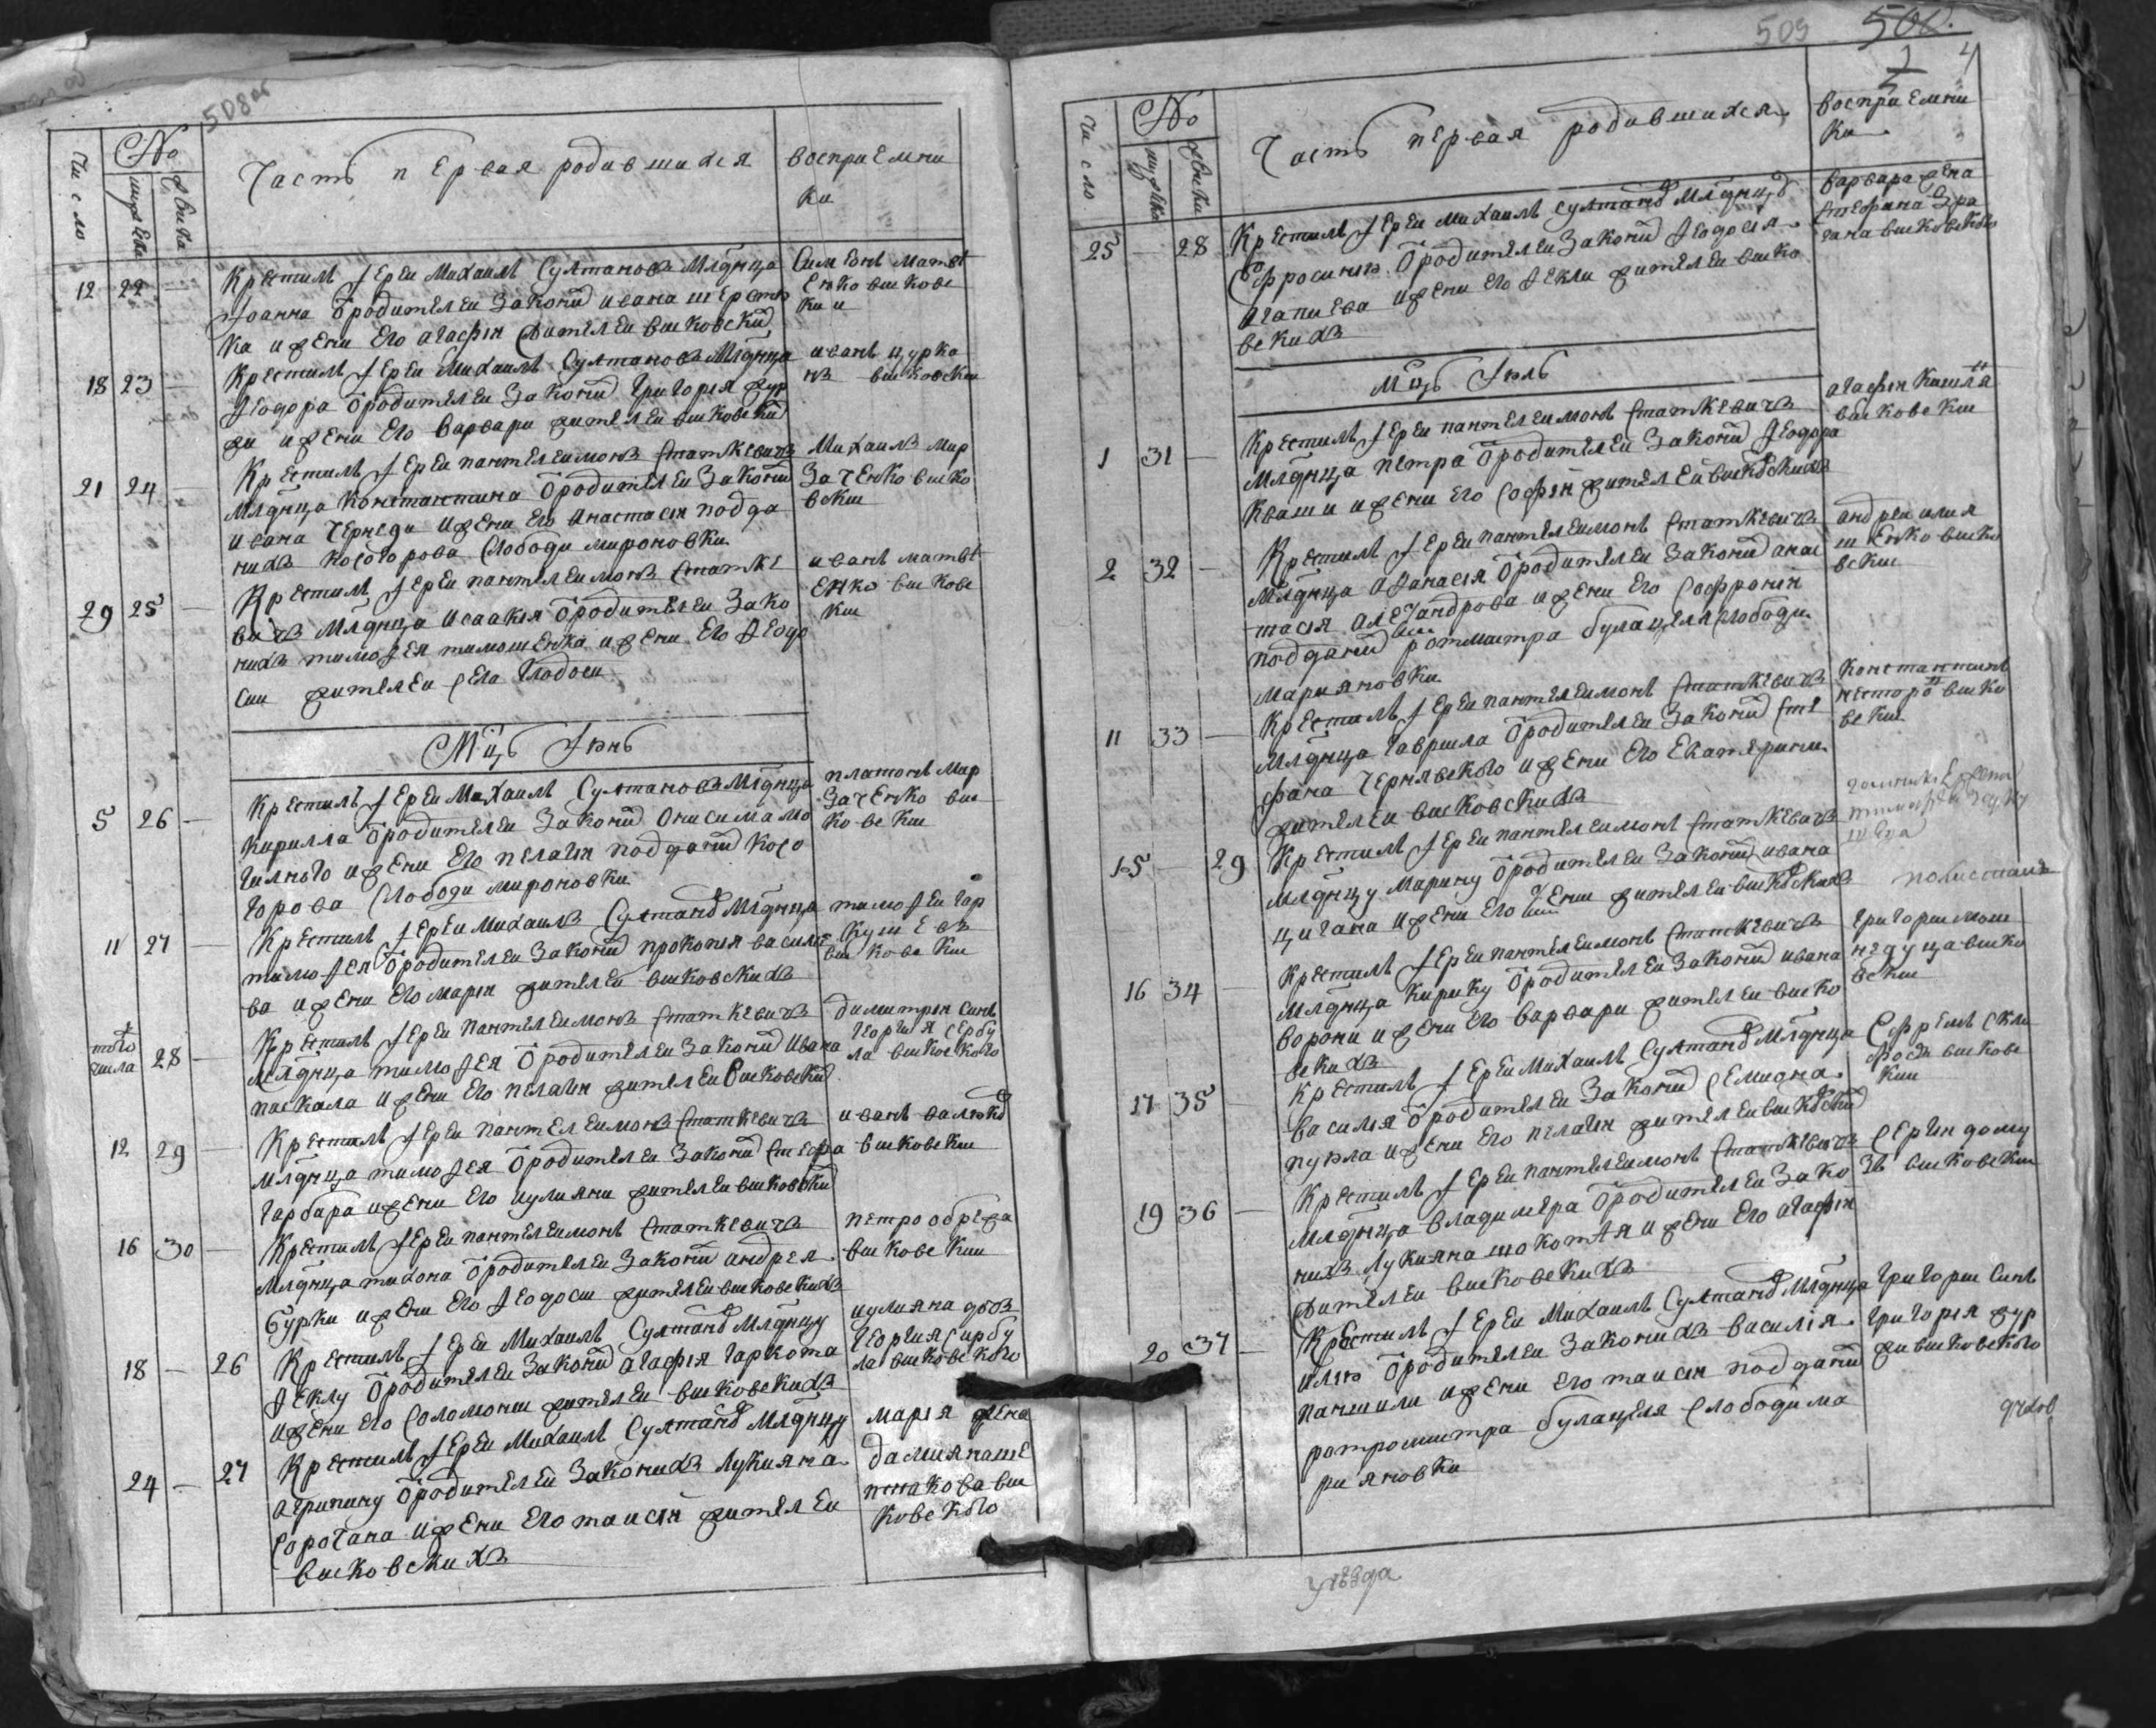 508об
Число
No
мужеска
женска
Часть первая родившихся
восприемни
ки
12 22 Крестилъ Іереи Михаилъ Султановъ Младенца
Іоанна Ѿ родителеи Законнихъ ивана шерстю
ка и жени его агафіи жителеи висковских
Симеонъ матве
енко висковс
кии
18 23 Крестилъ Іереи Михаилъ Султановъ Млднца
Ѳеодора Ѿ родителеи Законих Григорія жур
жи и жени его варвари жителеи висковских
иванъ цурка
нъ висковски
21 24 Крестилъ Іереи пантелеимонъ статкевичъ
Млднца Константина Ѿ родителеи Законих
ивана Чернеди и жени его анастасіи подда
нихъ косогорова Слободи мироновки
Михаилъ мир
заченко виско
вскии
29 25 Крестилъ Іереи пантелеимонъ статке
вичъ Млднца исаакія Ѿ родителеи Зако
нихъ тимоѳея тимошенка и жени его Ѳеодо
сии жителеи села Глодоси
иванъ матве
енко висковс
кии
Мцъ Іюнь
5 26 Крестилъ Іереи Михаилъ Султановъ Млднца
кирилла Ѿ родителеи Законих Онисима мо
гилного и жени его пелагіи подданих косо
горова Слободи мироновки
платонъ мир
Заченко вис
ковскии
11 27 Крестилъ Іереи Михаилъ Султанов Млднца
тимоѳея Ѿ родителеи Законих прокопія василе
ва и жени его маріи жителеи висковскихъ
тимоѳеи гар
кушевъ
висковскии
того
числа 28 Крестилъ Іереи Пантелеимонъ статкевичъ
Млднца тимоѳея Ѿ родителеи Законих ивана
паскала и жени его пелагіи жителеи висковских
димитріи синъ
георгия сербу
ла висковского
12 29 Крестилъ Іереи пантелеимонъ статкевичъ
Млднца тимоѳея Ѿ родителеи Законих стефа
гарбара и жени его иулияни жителеи висковских
иванъ валюков
висковскии
16 30 Крестилъ Іереи пантелеимонъ статкевичъ
Млднца тихона Ѿ родителеи Законих андрея
бурки и жени его Ѳеодоси жителеи висковскихъ
петро обрежа
висковскии
18 26 Крестилъ Іереи Михаилъ Султанов Млднцу
Ѳеклу Ѿ родителеи Законих агафія гаркота
и жени его Соломонии жителеи висковскихъ
иулияна дочъ
георгия сирбу
ла висковского
24 27 Крестилъ Іереи Михаилъ Султанов Млднцу
агрипину Ѿ родителеи Законихъ лукияна
сорочана и жени его таисіи жителеи
висковскихъ
марія жена
дамияна ше
пнакова вис
ковского
509 508.
Число
No
мужска
женска
Часть первая родившихся
восприемни
ки
25 28 Крестилъ Іереи михаилъ султанов Младнцу
Ефросинию Ѿ родителеи Законих Ѳеодосія
агапиева и жени его Ѳекли жителеи виско
вскихъ
варвара жена
стефана
висковского
Мцъ Іюль
1 31 Крестилъ Іереи пантелеимонъ статкевичъ
Млднца петра Ѿ родителеи Законих Ѳеодора
кваши и жени его софіи жителеи висковскихъ
агафія кишля
висковскии
2 32 Крестилъ Іереи пантелеимонъ статкевичъ
Млднца афанасія Ѿ родителеи Законих анас
тасія александрова и жени его софронии
подданих ротмистра булацеля слободи
марияновки
андреи илия
шенко виско
вскии
11 33 Крестилъ Іереи пантелеимонъ статкевичъ
Млднца гавриила Ѿ родителеи Законих сте
фана Чернявского и жени его Екатерини
жителеи висковскихъ
Константинъ
несторо виско
вскии
15 29 Крестилъ Іереи пантелеимонъ статкевичъ
Млднцу марину Ѿ родителеи Законих ивана
цигана и жени его жителеи висковскихъ
16 34 Крестилъ Іереи пантелеимонъ статкевичъ
Млднца кирику Ѿ родителеи Законих ивана
ворони и жени его варвари жителеи виско
вскихъ
григории мош
недуца виско
вскии
17 35 Крестилъ Іереи Михаилъ Султанов Млднца
василія Ѿ родителеи Законих
и жени его пелагіи жителеи висковских
Ефремъ скли
фосъ висковс
кии
19 36 Крестилъ Іереи пантелеимонъ статкевичъ
Млднца владимера Ѿ родителеи Зако
нихъ лукияна шокотея и жени его агафіи
жителеи висковскихъ
сергіи дому
зъ висковскии
20 37 Крестилъ Іереи Михаилъ Султанов Млднца
илію Ѿ родителеи Законихъ василія
паншили и жени его таисіи подданих
ротромистра булацеля слободи ма
рияновки
григории синъ
григорія жур
жи висковского
уезда